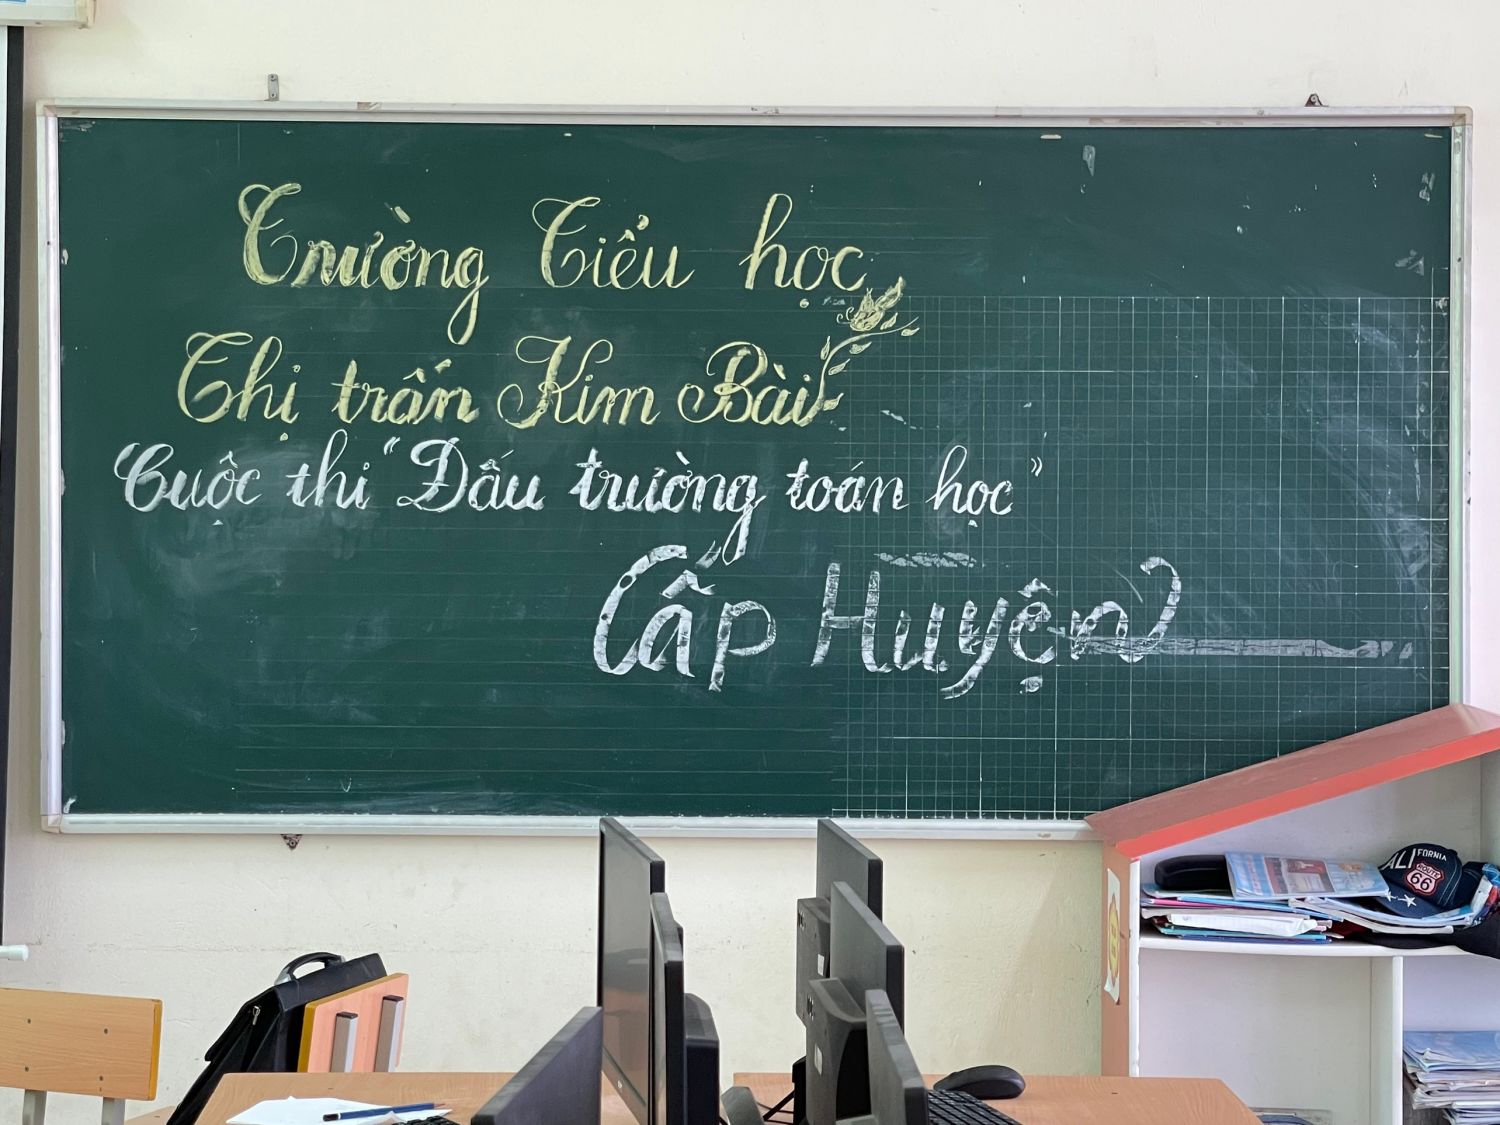 Trường Tiểu học
Thị trấn Kim Bài
Cuộc thi "Dấu trường toán học"
Cấp Huyện
CALIFORNIA
ROUTE
66